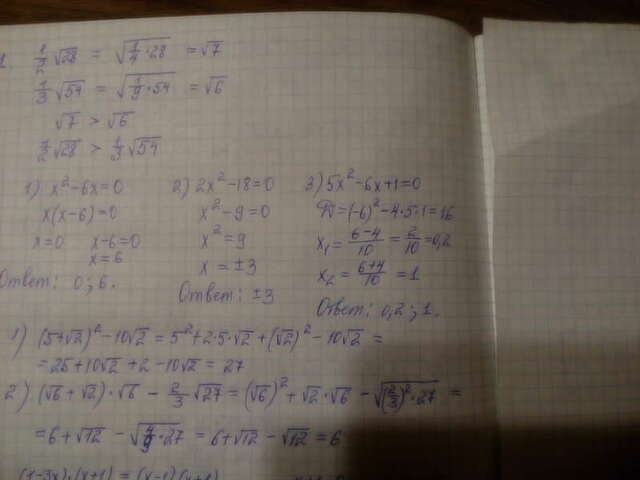 1. 1/2 √28 = √(1/4 · 28) = √7
1/3 √54 = √(1/9 · 54) = √6
√7 > √6
1/2 √28 > 1/3 √54
1) x² - 6x = 0
x(x - 6) = 0
x = 0 x - 6 = 0
x = 6
Ответ: 0; 6.
2) 2x² - 18 = 0
x² - 9 = 0
x² = 9
x = ±3
Ответ: ±3
3) 5x² - 6x + 1 = 0
D = (-6)² - 4·5·1 = 16
x₁ = (6-4)/10 = 2/10 = 0,2
x₂ = (6+4)/10 = 1
Ответ: 0,2; 1.
1) (5+√2)² - 10√2 = 5² + 2·5·√2 + (√2)² - 10√2 =
= 25 + 10√2 + 2 - 10√2 = 27
2) (√6 + √2)·√6 - 2/3 √27 = (√6)² + √2·√6 - √((2/3)² · 27) =
= 6 + √12 - √(4/9 · 27) = 6 + √12 - √12 = 6
(1-3x)·(x+1) = (x-1)(x+1)